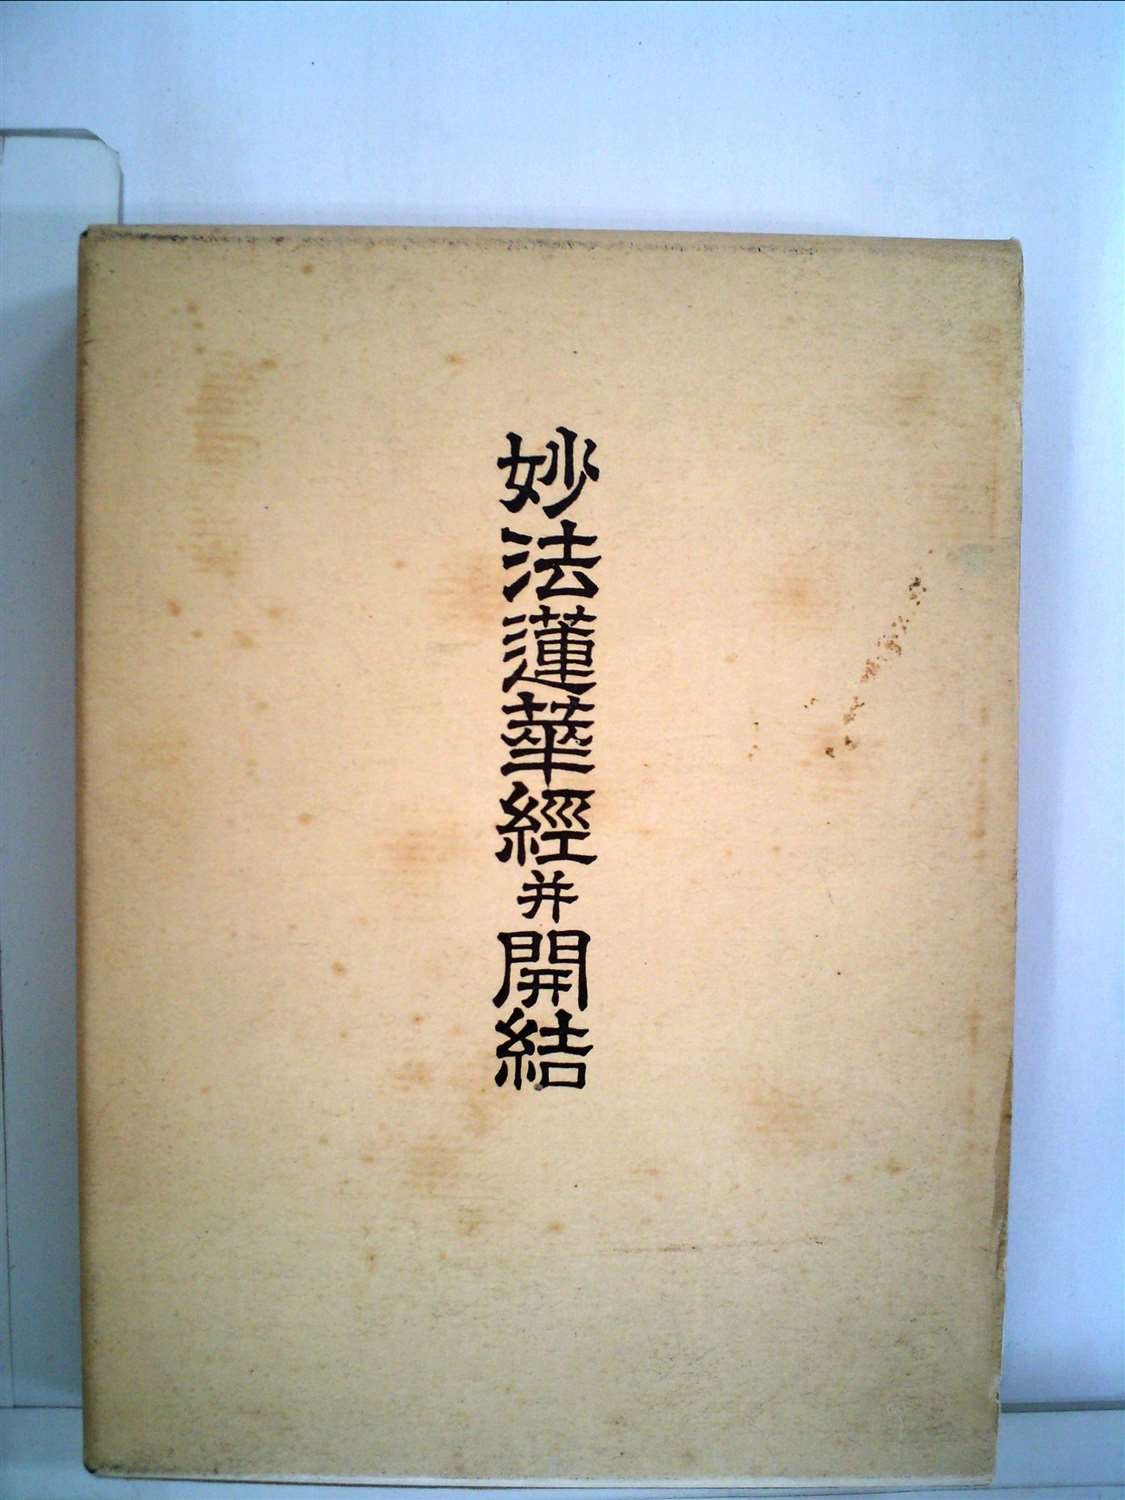 妙法蓮華經并開結